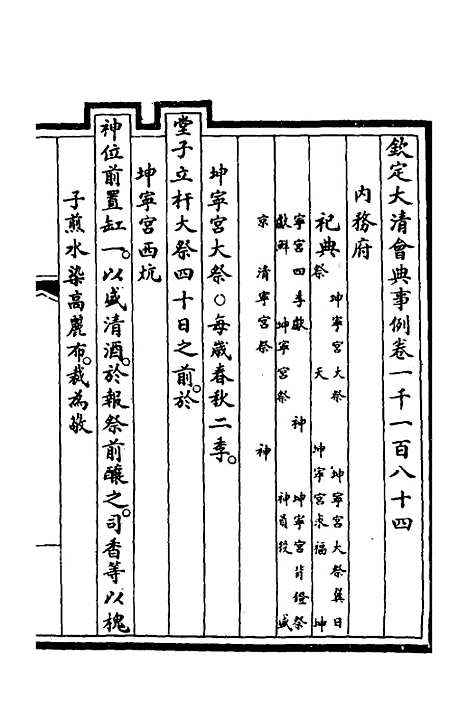 欽定大清會典事例卷一千一百八十四
內務府
祀典 坤寧宮大祭 坤寧宮大祭翼日
祭 天 坤寧宮求福 坤
寧宮四季獻 神 坤寧宮背鐙祭
獻鮮 坤寧宮祭 神員役 盛
京 清寧宮祭 神
坤寧宮大祭○每歲春秋二季。
堂子立杆大祭四十日之前。於
坤寧宮西炕
神位前置缸一。以盛清酒。於報祭前釀之。司香等以槐
子煎水染高麗布。裁為敬